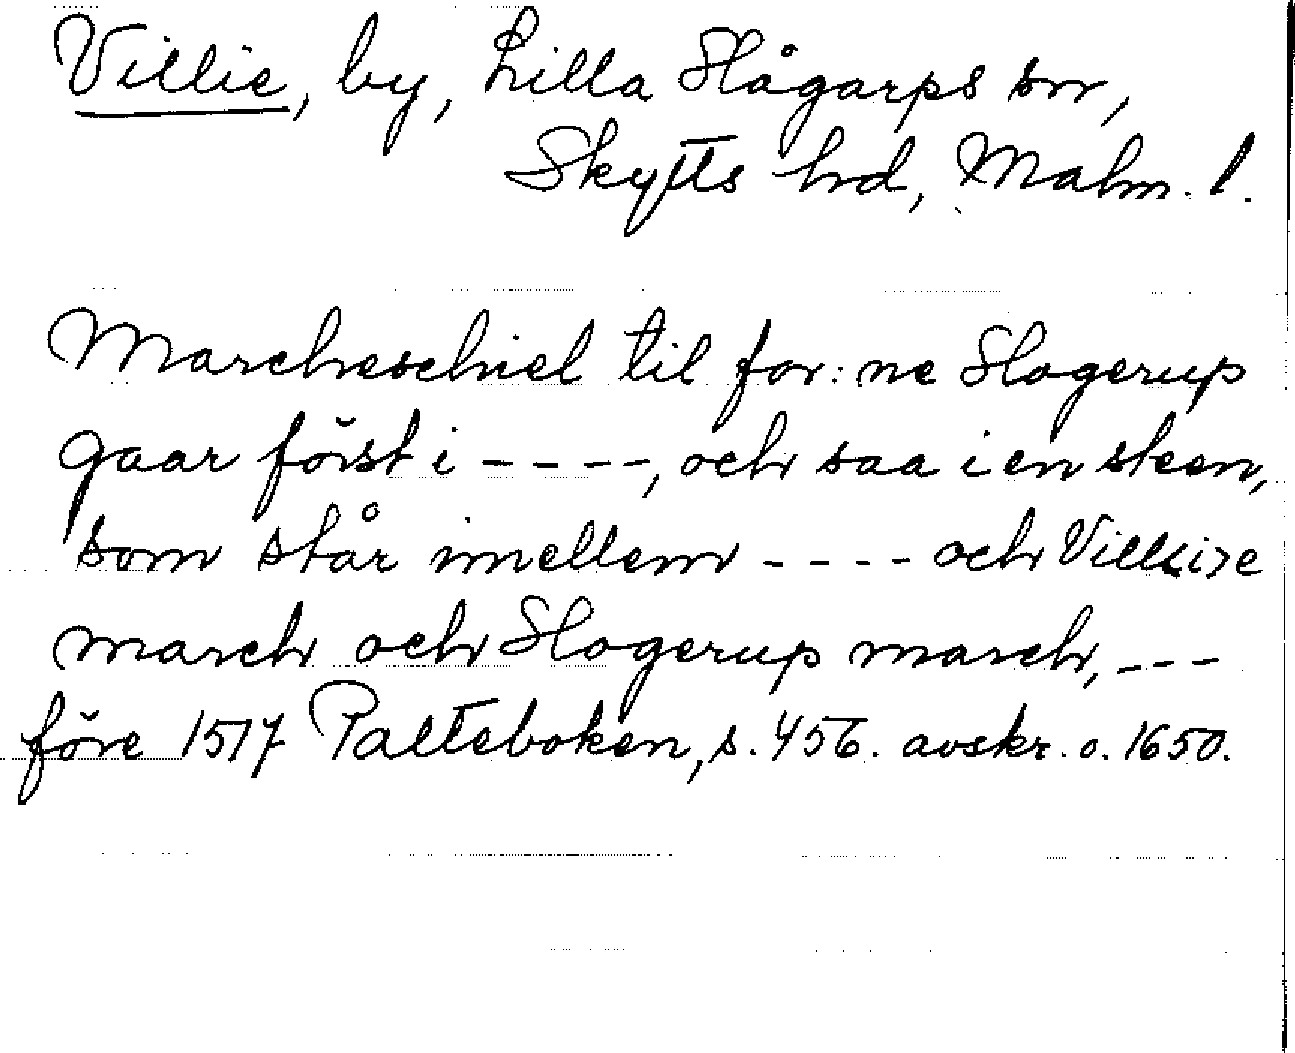 Villie, by, Lilla Slågarps sn,
Skytts hd, Malm. l.
Marcheschiel til for: ne Slogerup
gaar först i ----, och saa i en steen,
som står imellem ---- och Vill<i>e
march och Slogerup march, ---
före 1517 Palteboken, s. 456. avskr. o. 1650.